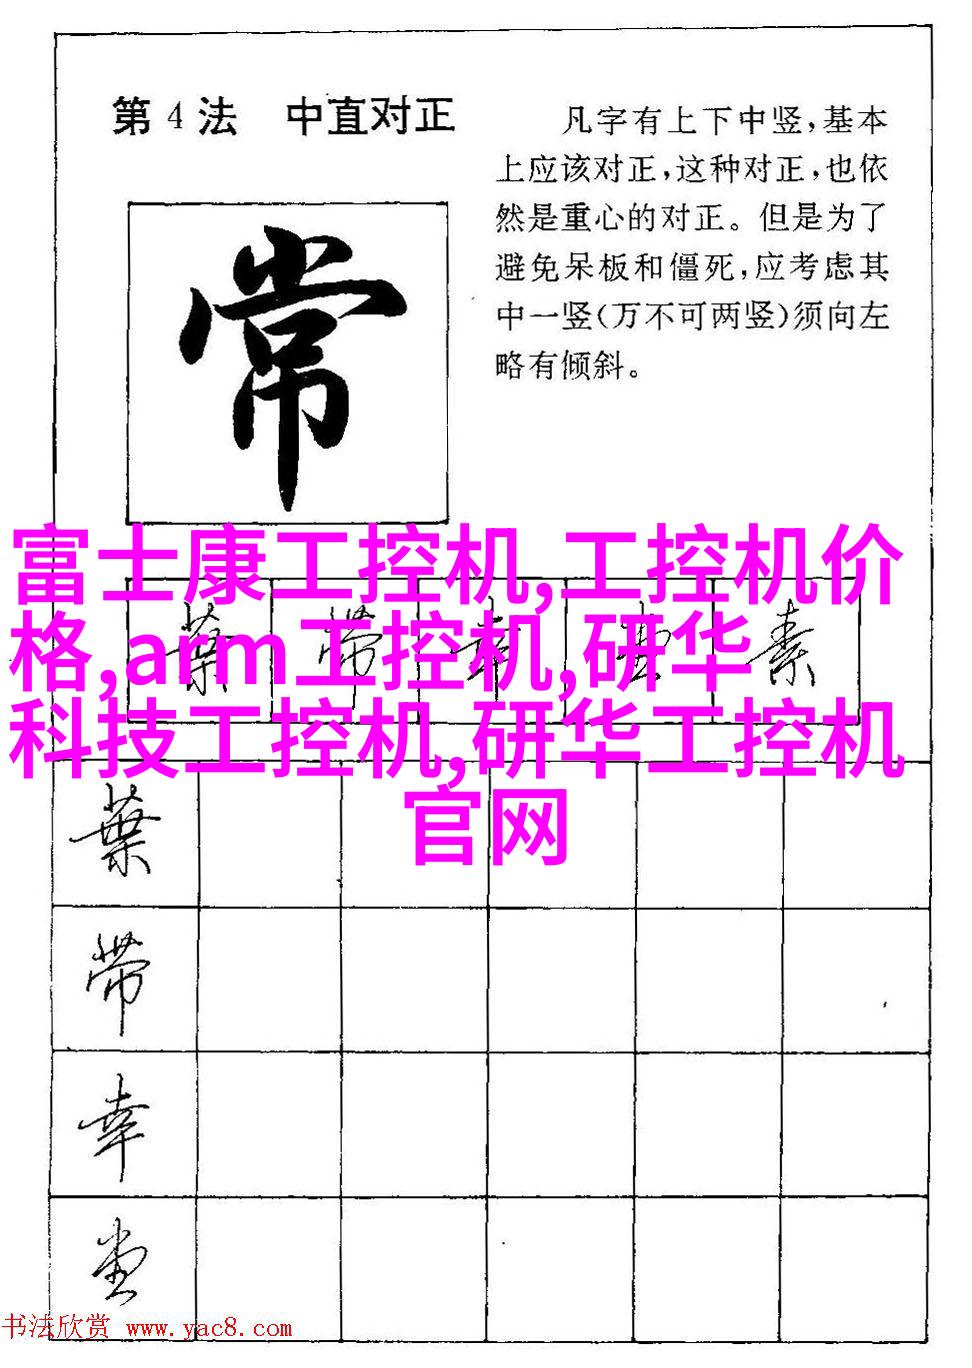 第4法 中直对正
凡字有上下中竖,基本
上应该对正,这种对正,也依
然是重心的对正。但是为了
避免呆板和僵死,应考虑其
中一竖(万不可两竖)须向左
略有倾斜。
常
富士康工控机,工控机价
格,arm工控机,研华
科技工控机,研华工控机
官网
葉 带 幸 素
葉
带
幸
书法欣赏 www.yac8.com